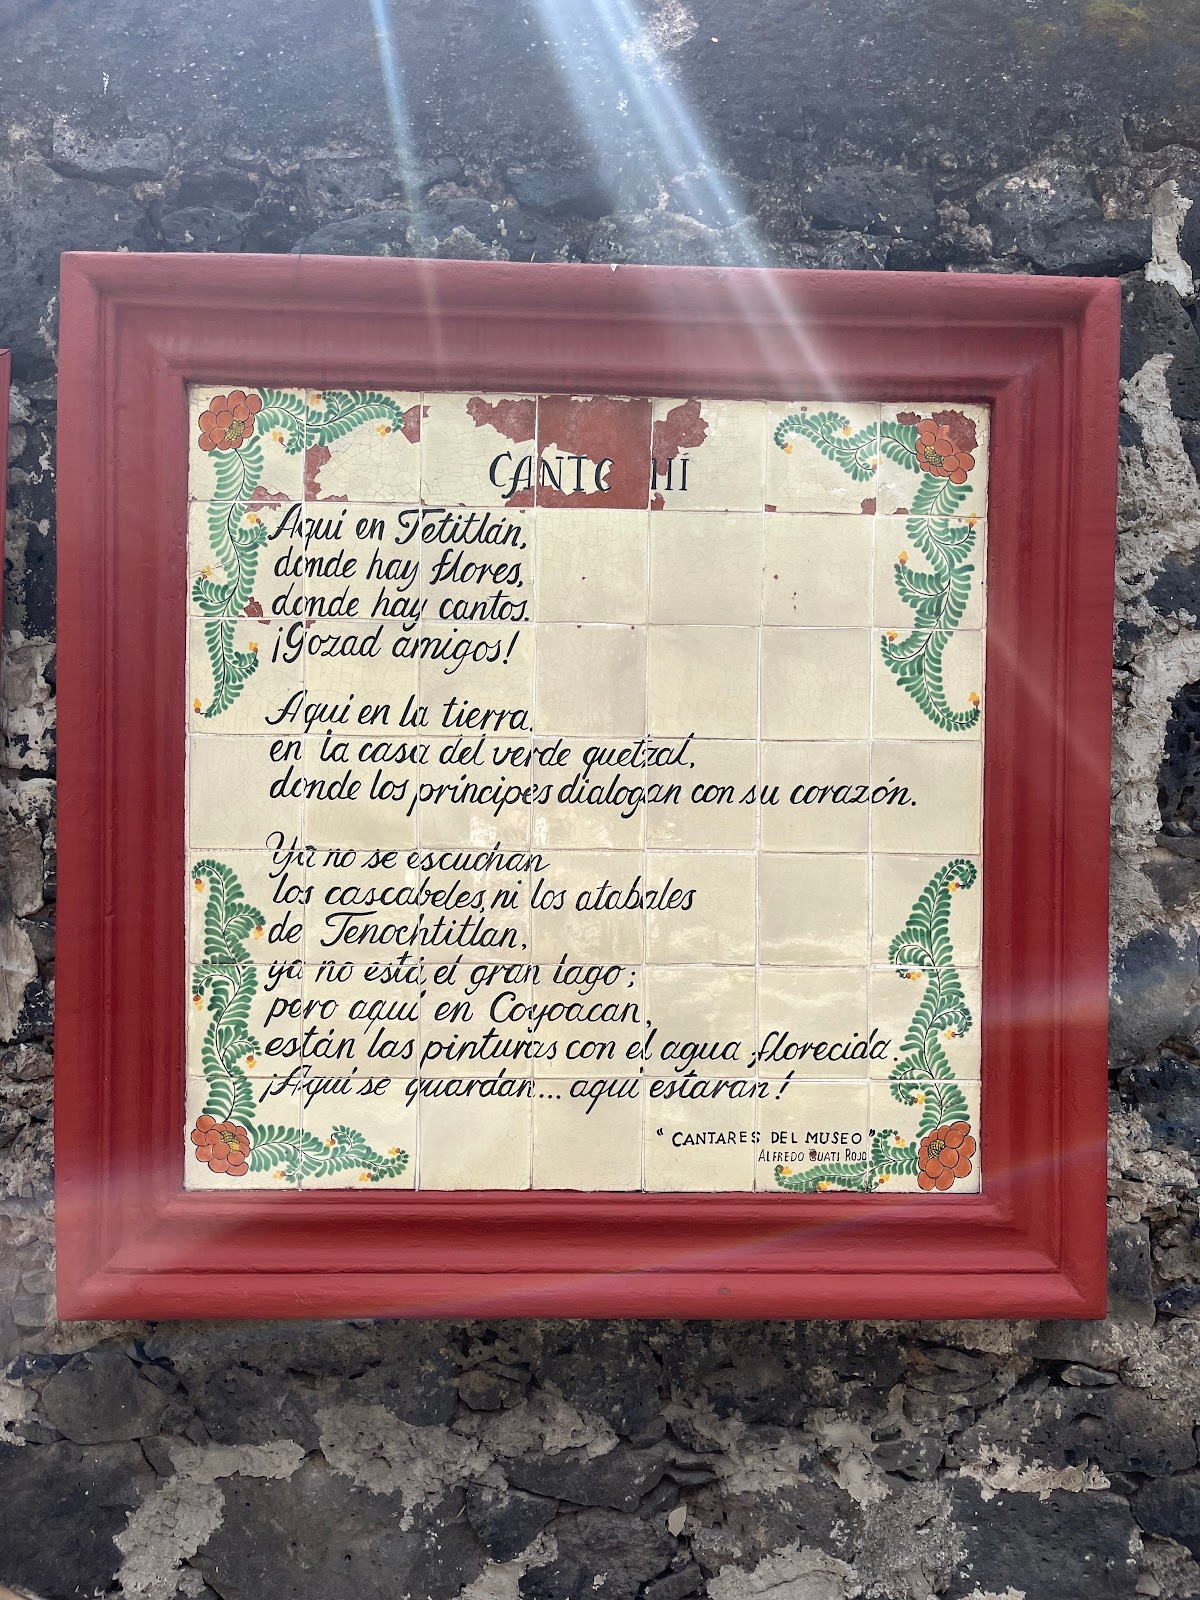 CANTO III
Aquí en Tetitlán,
donde hay flores,
donde hay cantos.
¡Gozad amigos!
Aquí en la tierra,
en la casa del verde quetzal,
donde los príncipes dialogan con su corazón.
Ya no se escuchan
los cascabeles, ni los atabales
de Tenochtitlan,
ya no está el gran lago;
pero aquí en Coyoacan,
están las pinturas con el agua florecida.
¡Aquí se guardan... aquí estarán!
"CANTARES DEL MUSEO"
ALFREDO GUATI ROJO